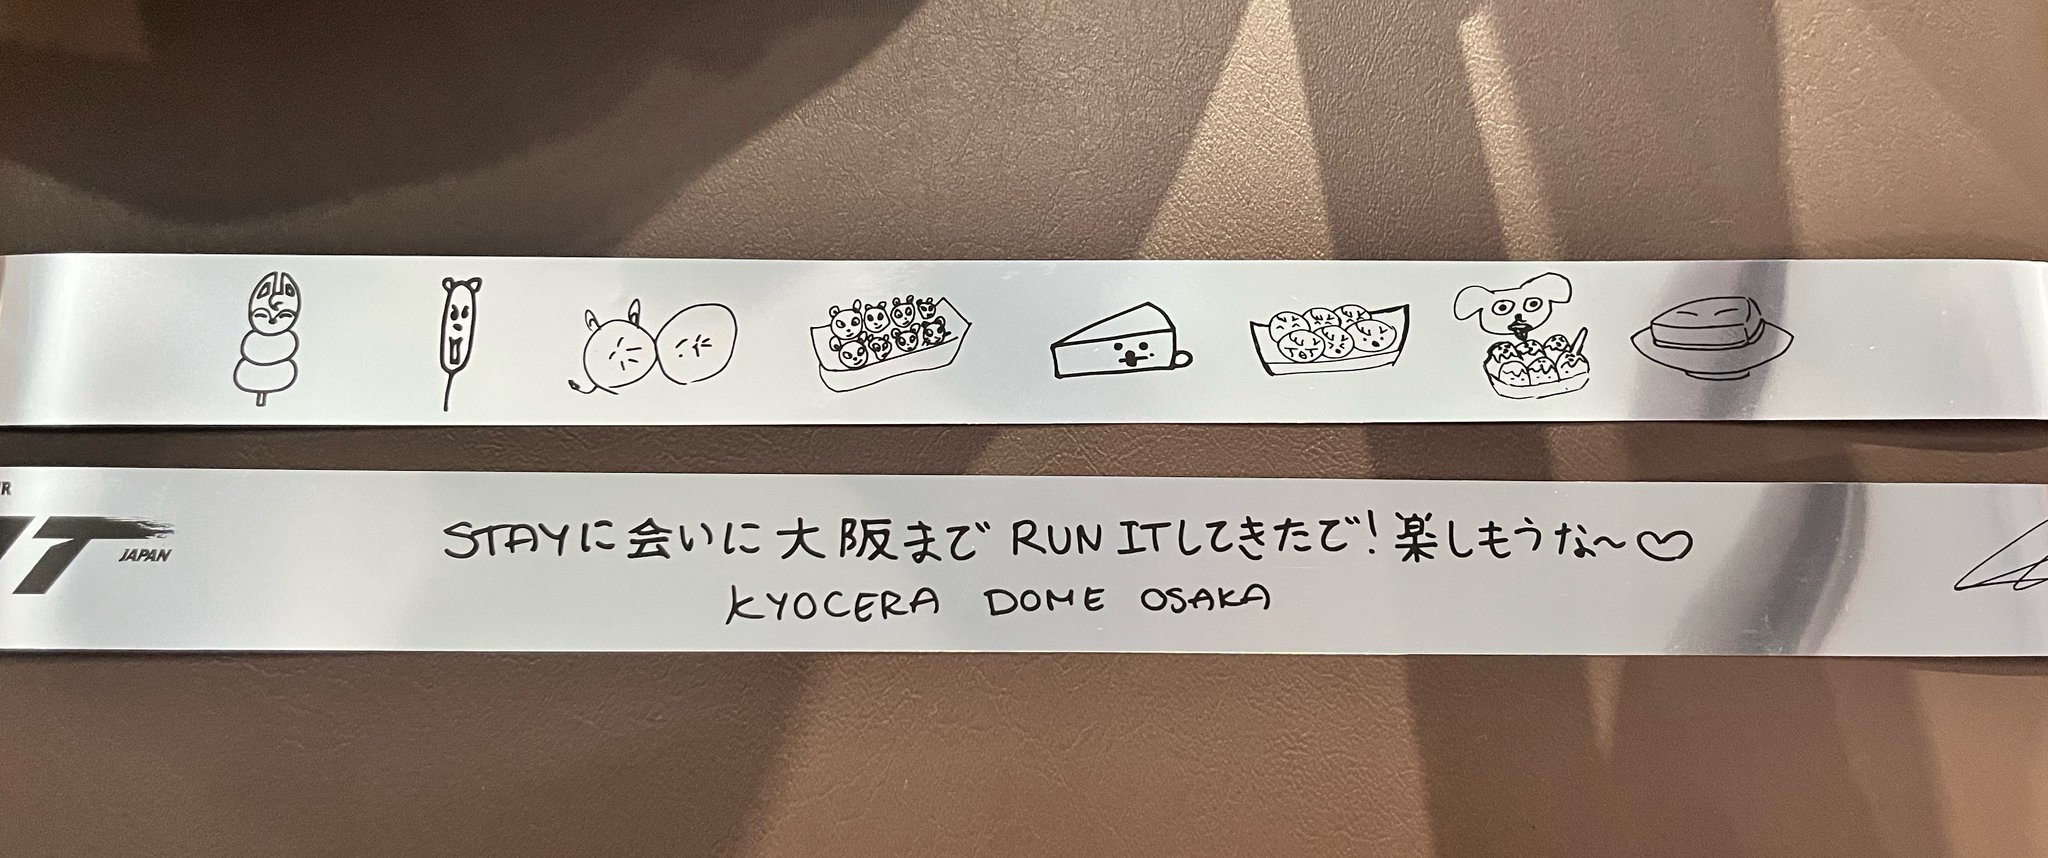 JAPAN
STAYに会いに大阪まで RUN ITしてきたで!楽しもうな〜♡
KYOCERA DOME OSAKA